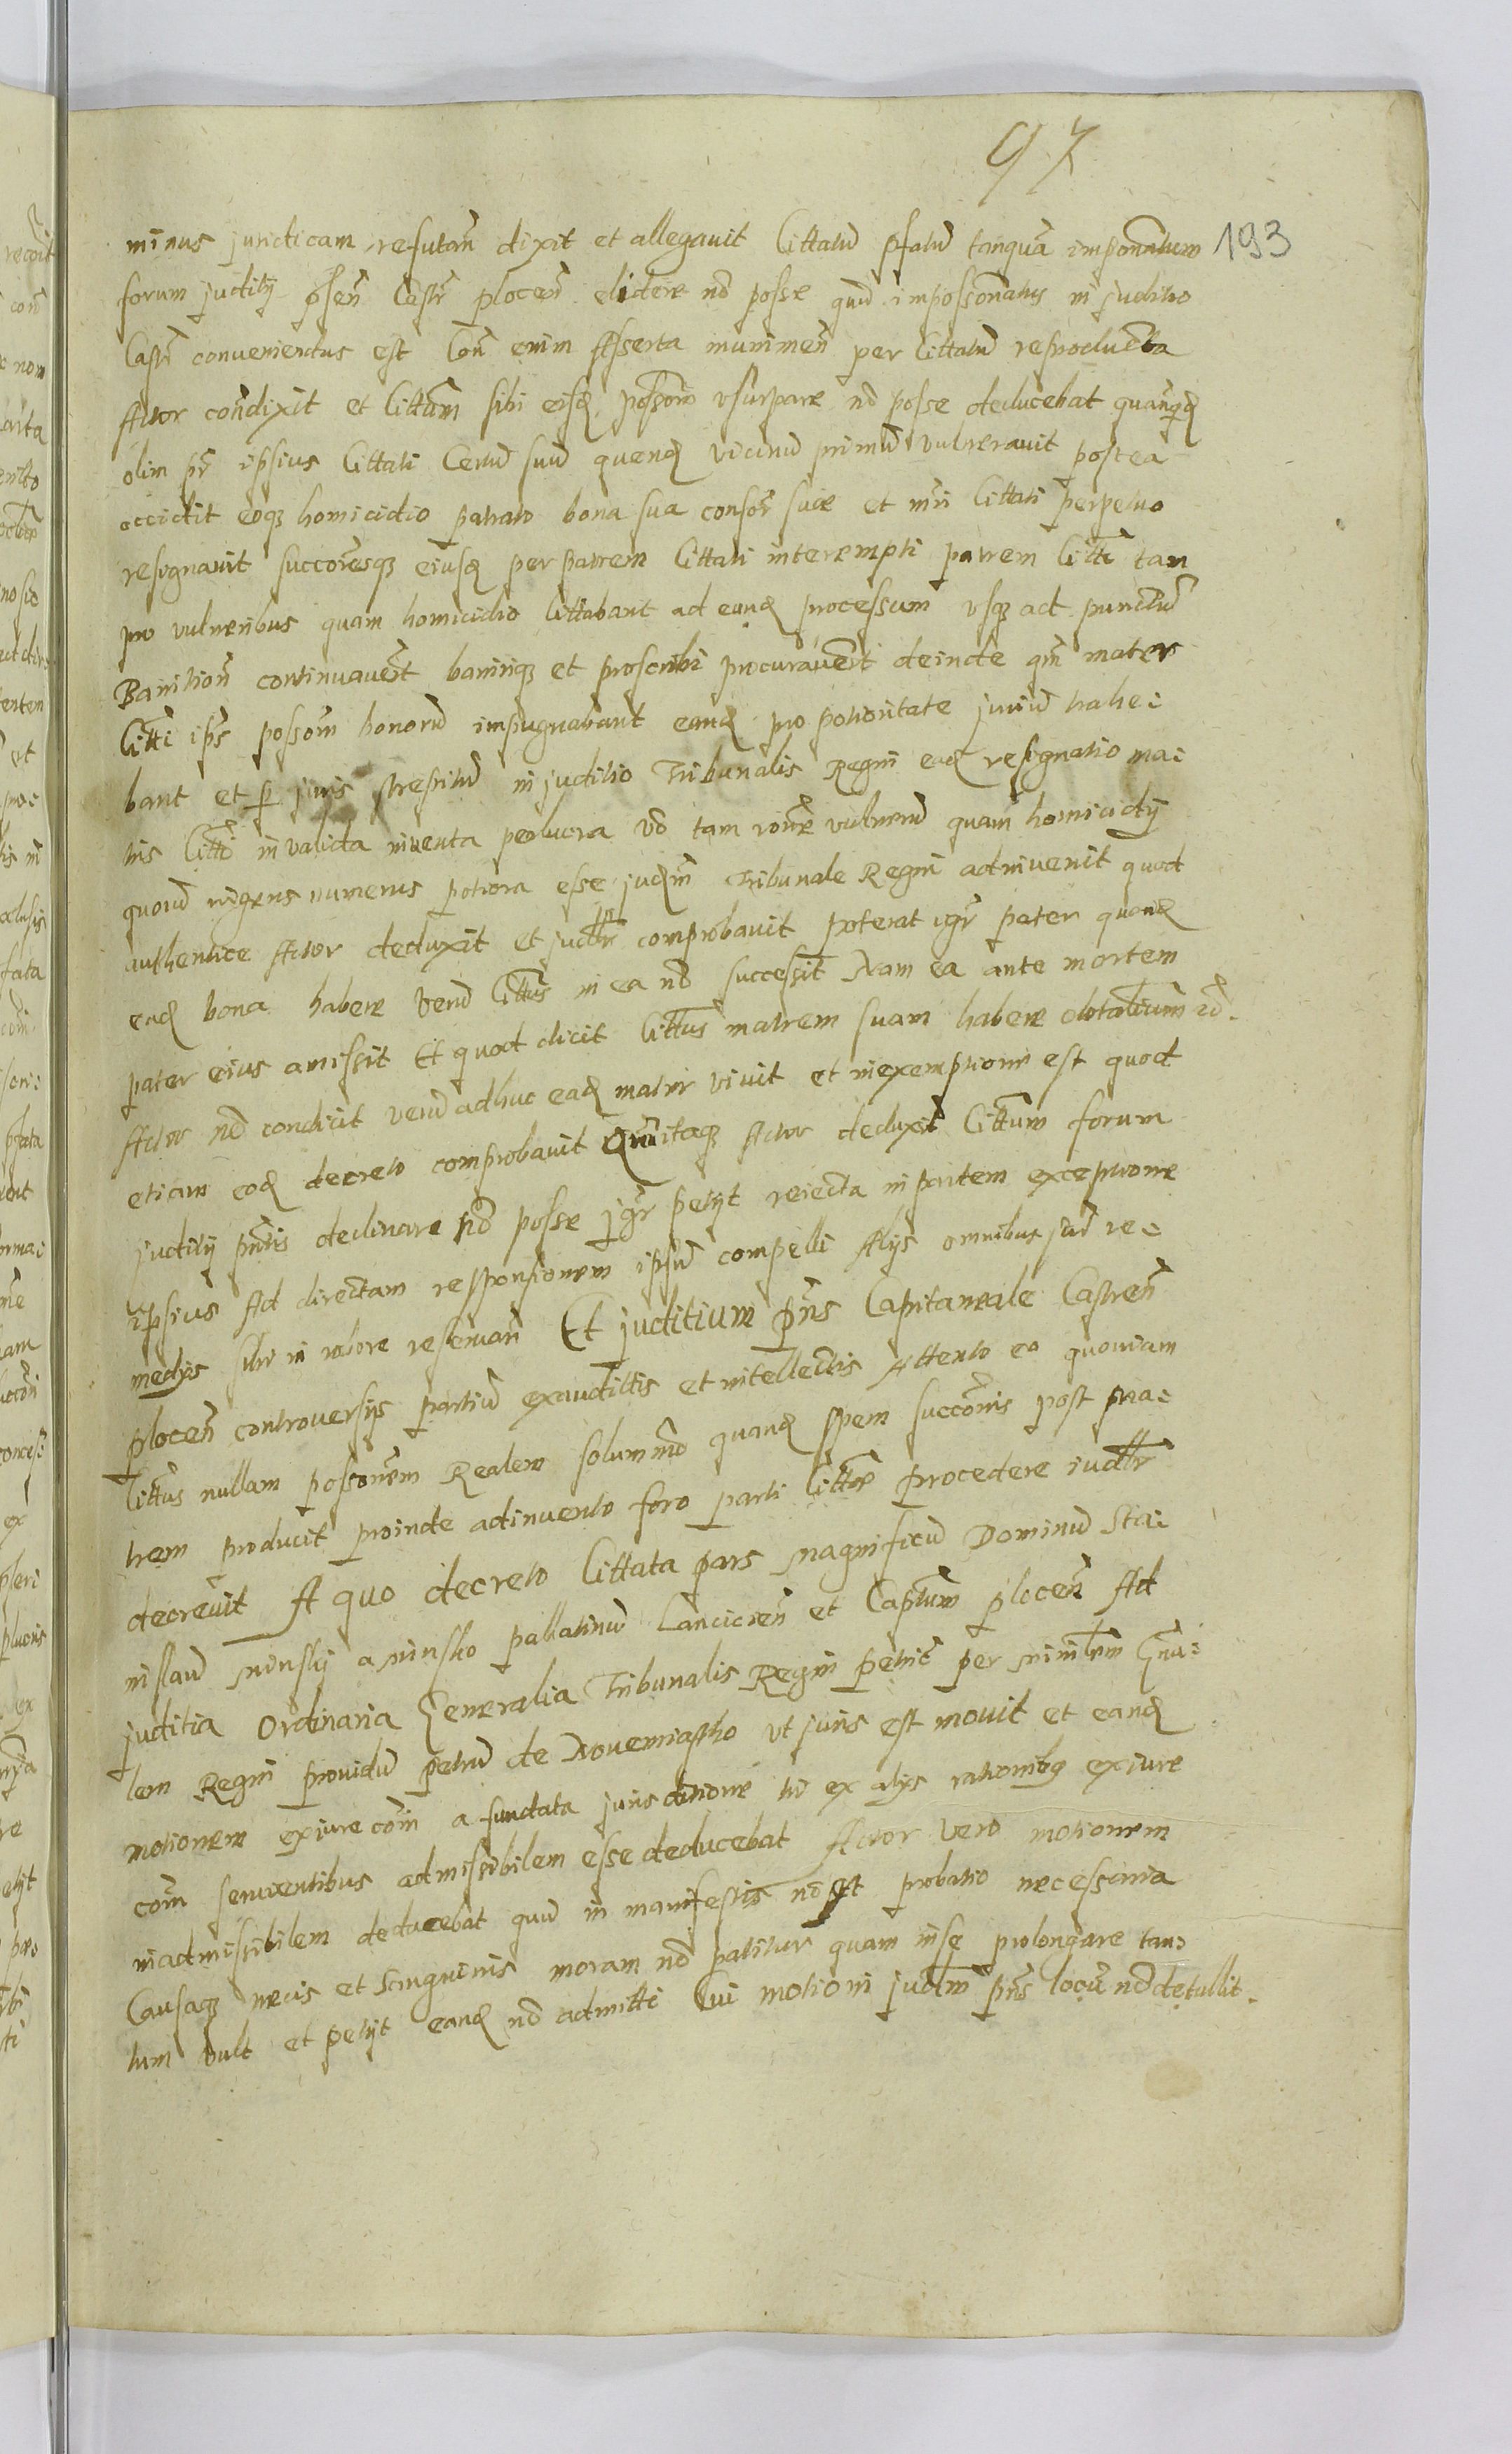 97
193
minus juridicam refutan̄ dixit et allegavit Cittatū pfatū tanquā impōnatum
forum juditij p̄sen̄ Castr̄ plocen̄ elidere nō posse quū impossōnatus in juditio
Castr̄ conveniendus est Con̄ enim Asserta munimen̄ per Cittatū reproducta
Actor condixit et Cittum̄ sibi eisd possōm usurpare nō posse deducebat
olim pr̄ ipsius Cittati Certū suū quend vicinū primū vulneravit postea
occidit eoq homicidio patrato bona sua consor̄ suæ et mr̄i Cittati perpetuo
resignavit succōresq eiusd per patrem Cittati interempti patrem Citti tam
pro vulneribus quam homicidio Cittabant ad eund processum usq ad punctū
Banition̄ continuaver̄t baniriq et proscribi procuraver̄t deinde qm̄ mater
Citti ips possōm bonorū impugnabant eand pro potioritate juriū trahe:
bant et p juris strepitū in juditio Tribunalis Regni ead resignatio ma:
tris Citti invalida inventa peolucra vō tam rōne vulnerū quam homicidij
quorū vigens numerus potiora esse judm̄ Tribunale Regni adinvenit quod
authentice Actor deduxit et judlr̄ comprobavit poterat igr̄ pater quond
ead bona habere Verū Cittus in ea nō successit Nam ea ante mortem
pater eius amissit Et quod dicit Cittus matrem suam habere dotalitium id.
Actor nō condicit verū adhuc ead mater vivit et in exemptione est quod
etiam eod decreto comprobavit Quitaq Actor deduxit Cittum forum
juditij pn̄tis declinare nō posse jgr̄ petijt reiecta in partem exceptione
ipsius Ad directam responsionem ipsū compelli Alijs omnibus jur̄ re:
medijs sibi in robore reservan̄ Et juditium pn̄s Capitaneale Castren̄
plocen̄ controversijs partiū exauditis et intellectis Attento eo quoniam
Cittus nullam possonem Realem solummō quand spem succōnis post ma:
trem producit proinde adinvento foro parti Cittæ procedere judlr̄
decrevit A quo decreto Cittata pars Magnificū Dominū Sta:
nislaū Minskij a Minsko pallatinū Lancicien̄ et Captum plocen̄ Ad
juditia Ordinaria Generalia Tribunalis Regni petijt per Minlrem Gn̄a:
lem Regni providū Petrū de Novemiasto ut juris est movit et eand
motionem ex jure com̄ a fundata jurisditione tū ex alijs rationibq ex jure
com̄ servientibus admissibilem esse deducebat Actor vero motionem
inadmissibilem deducebat quū in manifestis nō est probatio necessaria
Causaq necis et Sanguinis moram nō patitur quam in se prolongare tan:
tum vult et petijt eand nō admitti Cui motioni judm̄ pn̄s locū nō detullit.